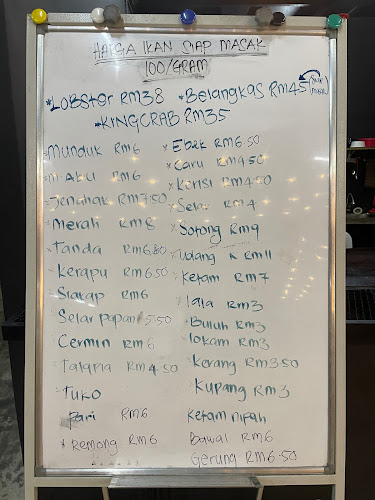 HARGA IKAN SIAP MASAK
100/GRAM
*LOBSTER RM38 *Belangkas RM45
*KINGCRAB RM35
Munduk RM6
M.AKU RM6
Jenahak RM7.50
Merah RM8
Tanda RM6.80
Kerapu RM6.50
Siakap RM6
Selar papan 5.50
Cermin RM6
Talapia RM4.50
TUKO
Pari RM6
* Remong RM6
* Ebek RM6.50
Caru RM4.50
* Kerisi RM4.50
Selar RM4
* Sotong RM9
Udang A RM11
Ketam RM7
lala RM3
Buluh RM3
lokam RM3
Kerang RM3.50
Kupang RM3
Ketam nipah
Bawal RM6
Gerung RM6.50